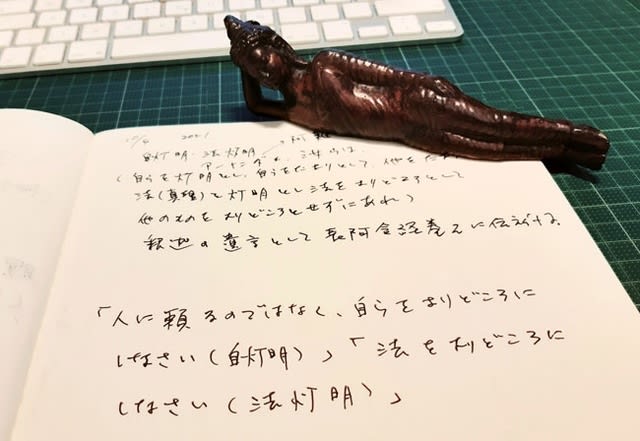 2021
自灯明・法灯明
(自らを灯明とし、自らをたよりとして、他を
法(真理)を灯明とし法をよりどころとして
他のものをよりどころとせずにあれ)
釈迦の遺言として長阿含経巻2に伝えられる
「人に頼るのではなく、自らをよりどころに
しなさい(自灯明)」「法をよりどころに
しなさい(法灯明)」